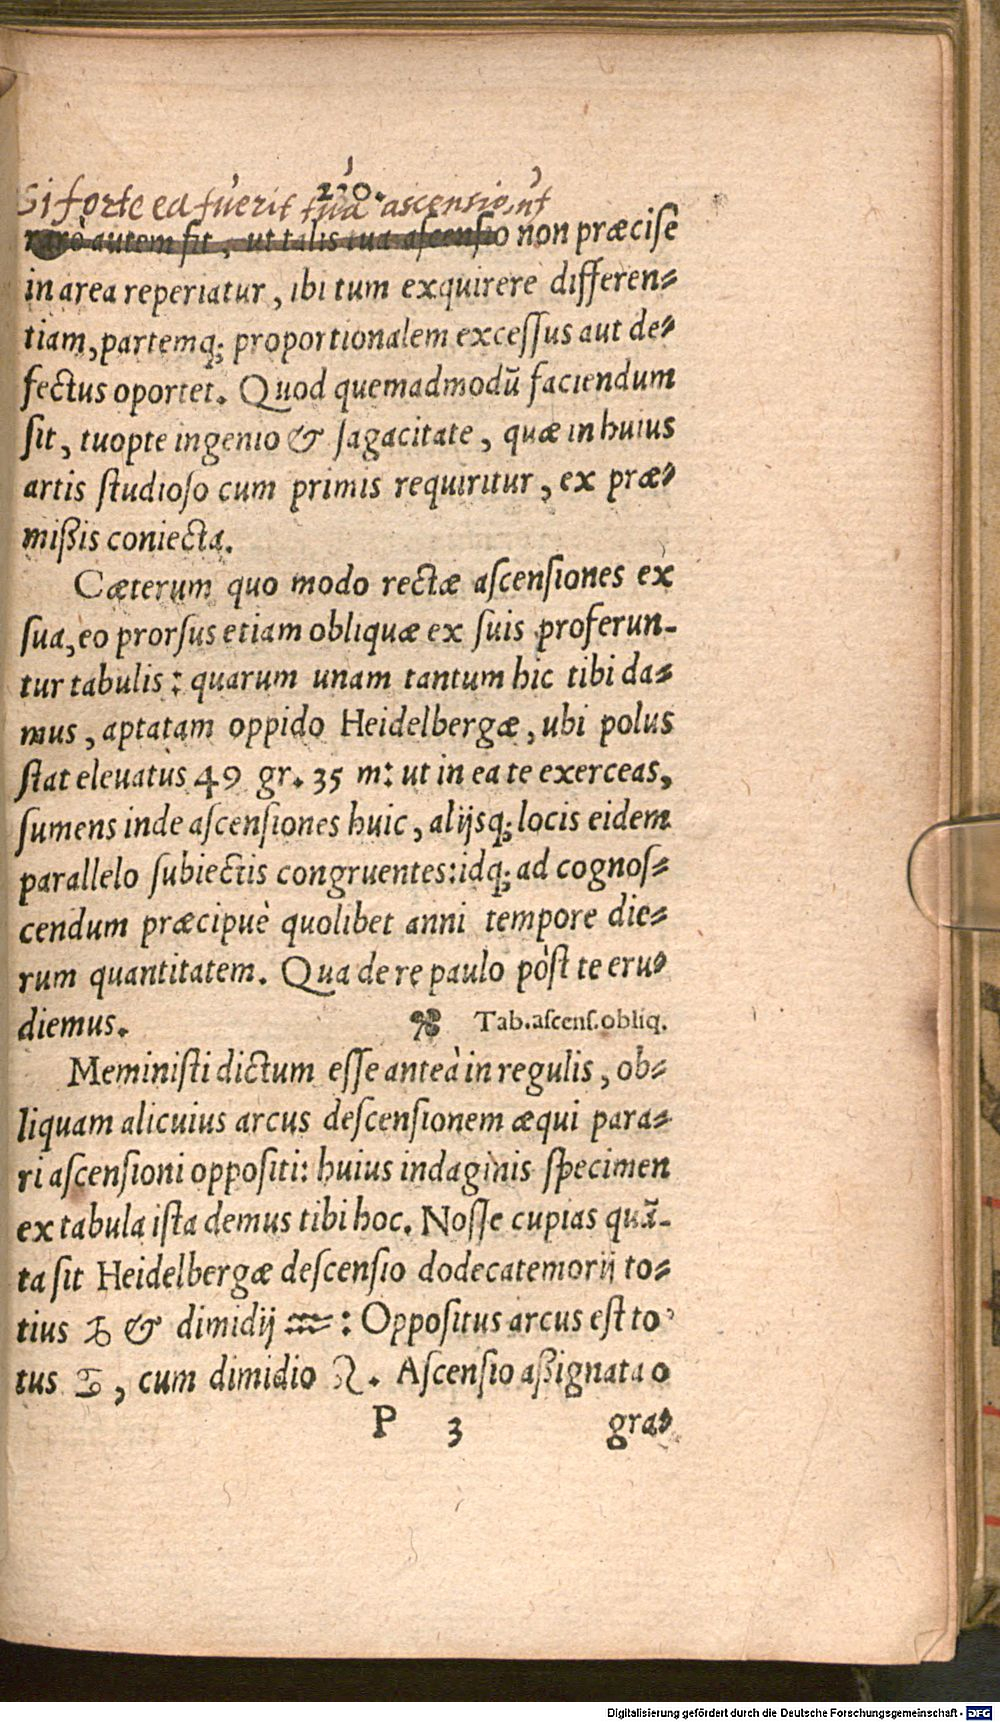 220.
Si forte ea fuerit tua ascensio, ut
raro autem fit, ut talis tua ascensio non præcise
in area reperiatur, ibi tum exquirere differen-
tiam, partemq; proportionalem excessus aut de-
fectus oportet. Quod quemadmodũ faciendum
sit, tuopte ingenio & sagacitate, quæ in huius
artis studioso cum primis requiritur, ex præ-
mißis coniecta.
Cæterum quo modo rectæ ascensiones ex
sua, eo prorsus etiam obliquæ ex suis proferun-
tur tabulis: quarum unam tantum hic tibi da-
mus, aptatam oppido Heidelbergæ, ubi polus
stat eleuatus 49 gr. 35 m: ut in ea te exerceas,
sumens inde ascensiones huic, alijsq; locis eidem
parallelo subiectis congruentes: idq; ad cognos-
cendum præcipuè quolibet anni tempore die-
rum quantitatem. Qua de re paulo pòst te eru-
diemus. ❧ Tab. ascens. obliq.
Meministi dictum esse anteà in regulis, ob-
liquam alicuius arcus descensionem æqui para-
ri ascensioni oppositi: huius indaginis specimen
ex tabula ista demus tibi hoc. Nosse cupias quã-
ta sit Heidelbergæ descensio dodecatemorij to-
tius ♑ & dimidij ♒: Oppositus arcus est to-
tus ♋, cum dimidio ♌. Ascensio aßignata 0
P 3 gra-
Digitalisierung gefördert durch die Deutsche Forschungsgemeinschaft - DFG